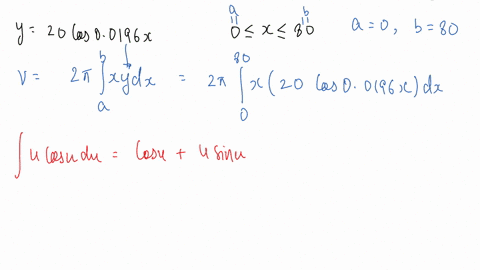 y = 20 Cos 0.0196x    0 ≤ x ≤ 80    a = 0, b = 80
a    b
V = 2π ∫_a^b xy dx = 2π ∫_0^80 x(20 cos 0.0196x) dx
∫ u cosu du = Cosu + u Sinu